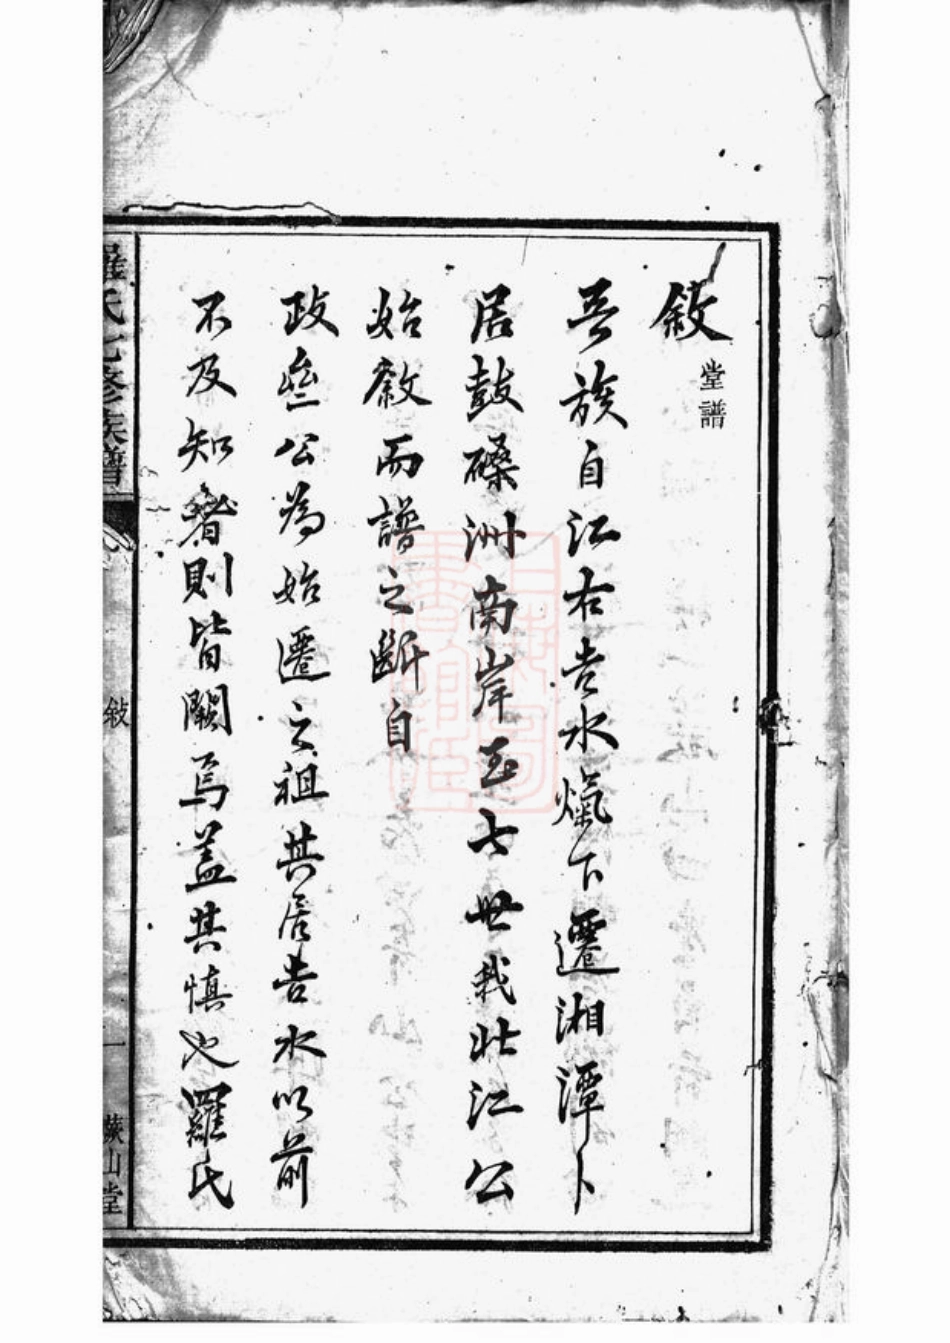 敘
堂譜
吾族自江右吉水爊下遷湘潭卜
居鼓磉洲南岸至七世我壯江公
始敘而譜之斷自
政叁公為始遷之祖其居吉水以前
不及知者則皆闕焉蓋其慎也羅氏
羅氏七修族譜
敘
一
蔴山堂